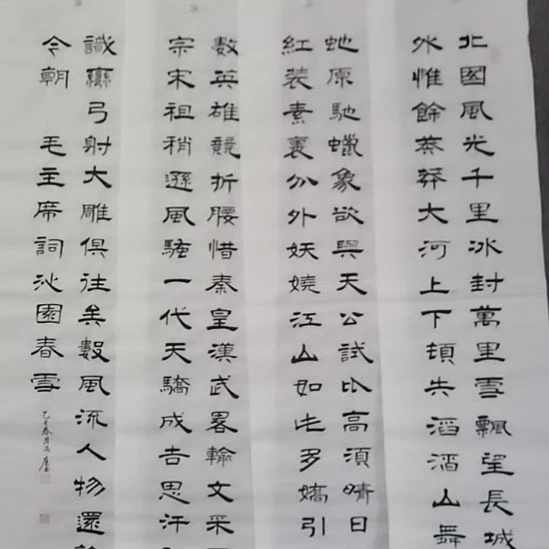 北國風光千里冰封萬里雪飄望長城
外惟餘莽莽大河上下頓失滔滔山舞
虵原馳蠟象欲與天公試比高須晴日
紅装素裹分外妖嬈江山如此多嬌引
數英雄競折腰惜秦皇漢武畧輸文采
宗宋祖稍遜風騷一代天驕成吉思汗
識彎弓射大雕俱往矣數風流人物還
今朝 毛主席詞沁園春雪